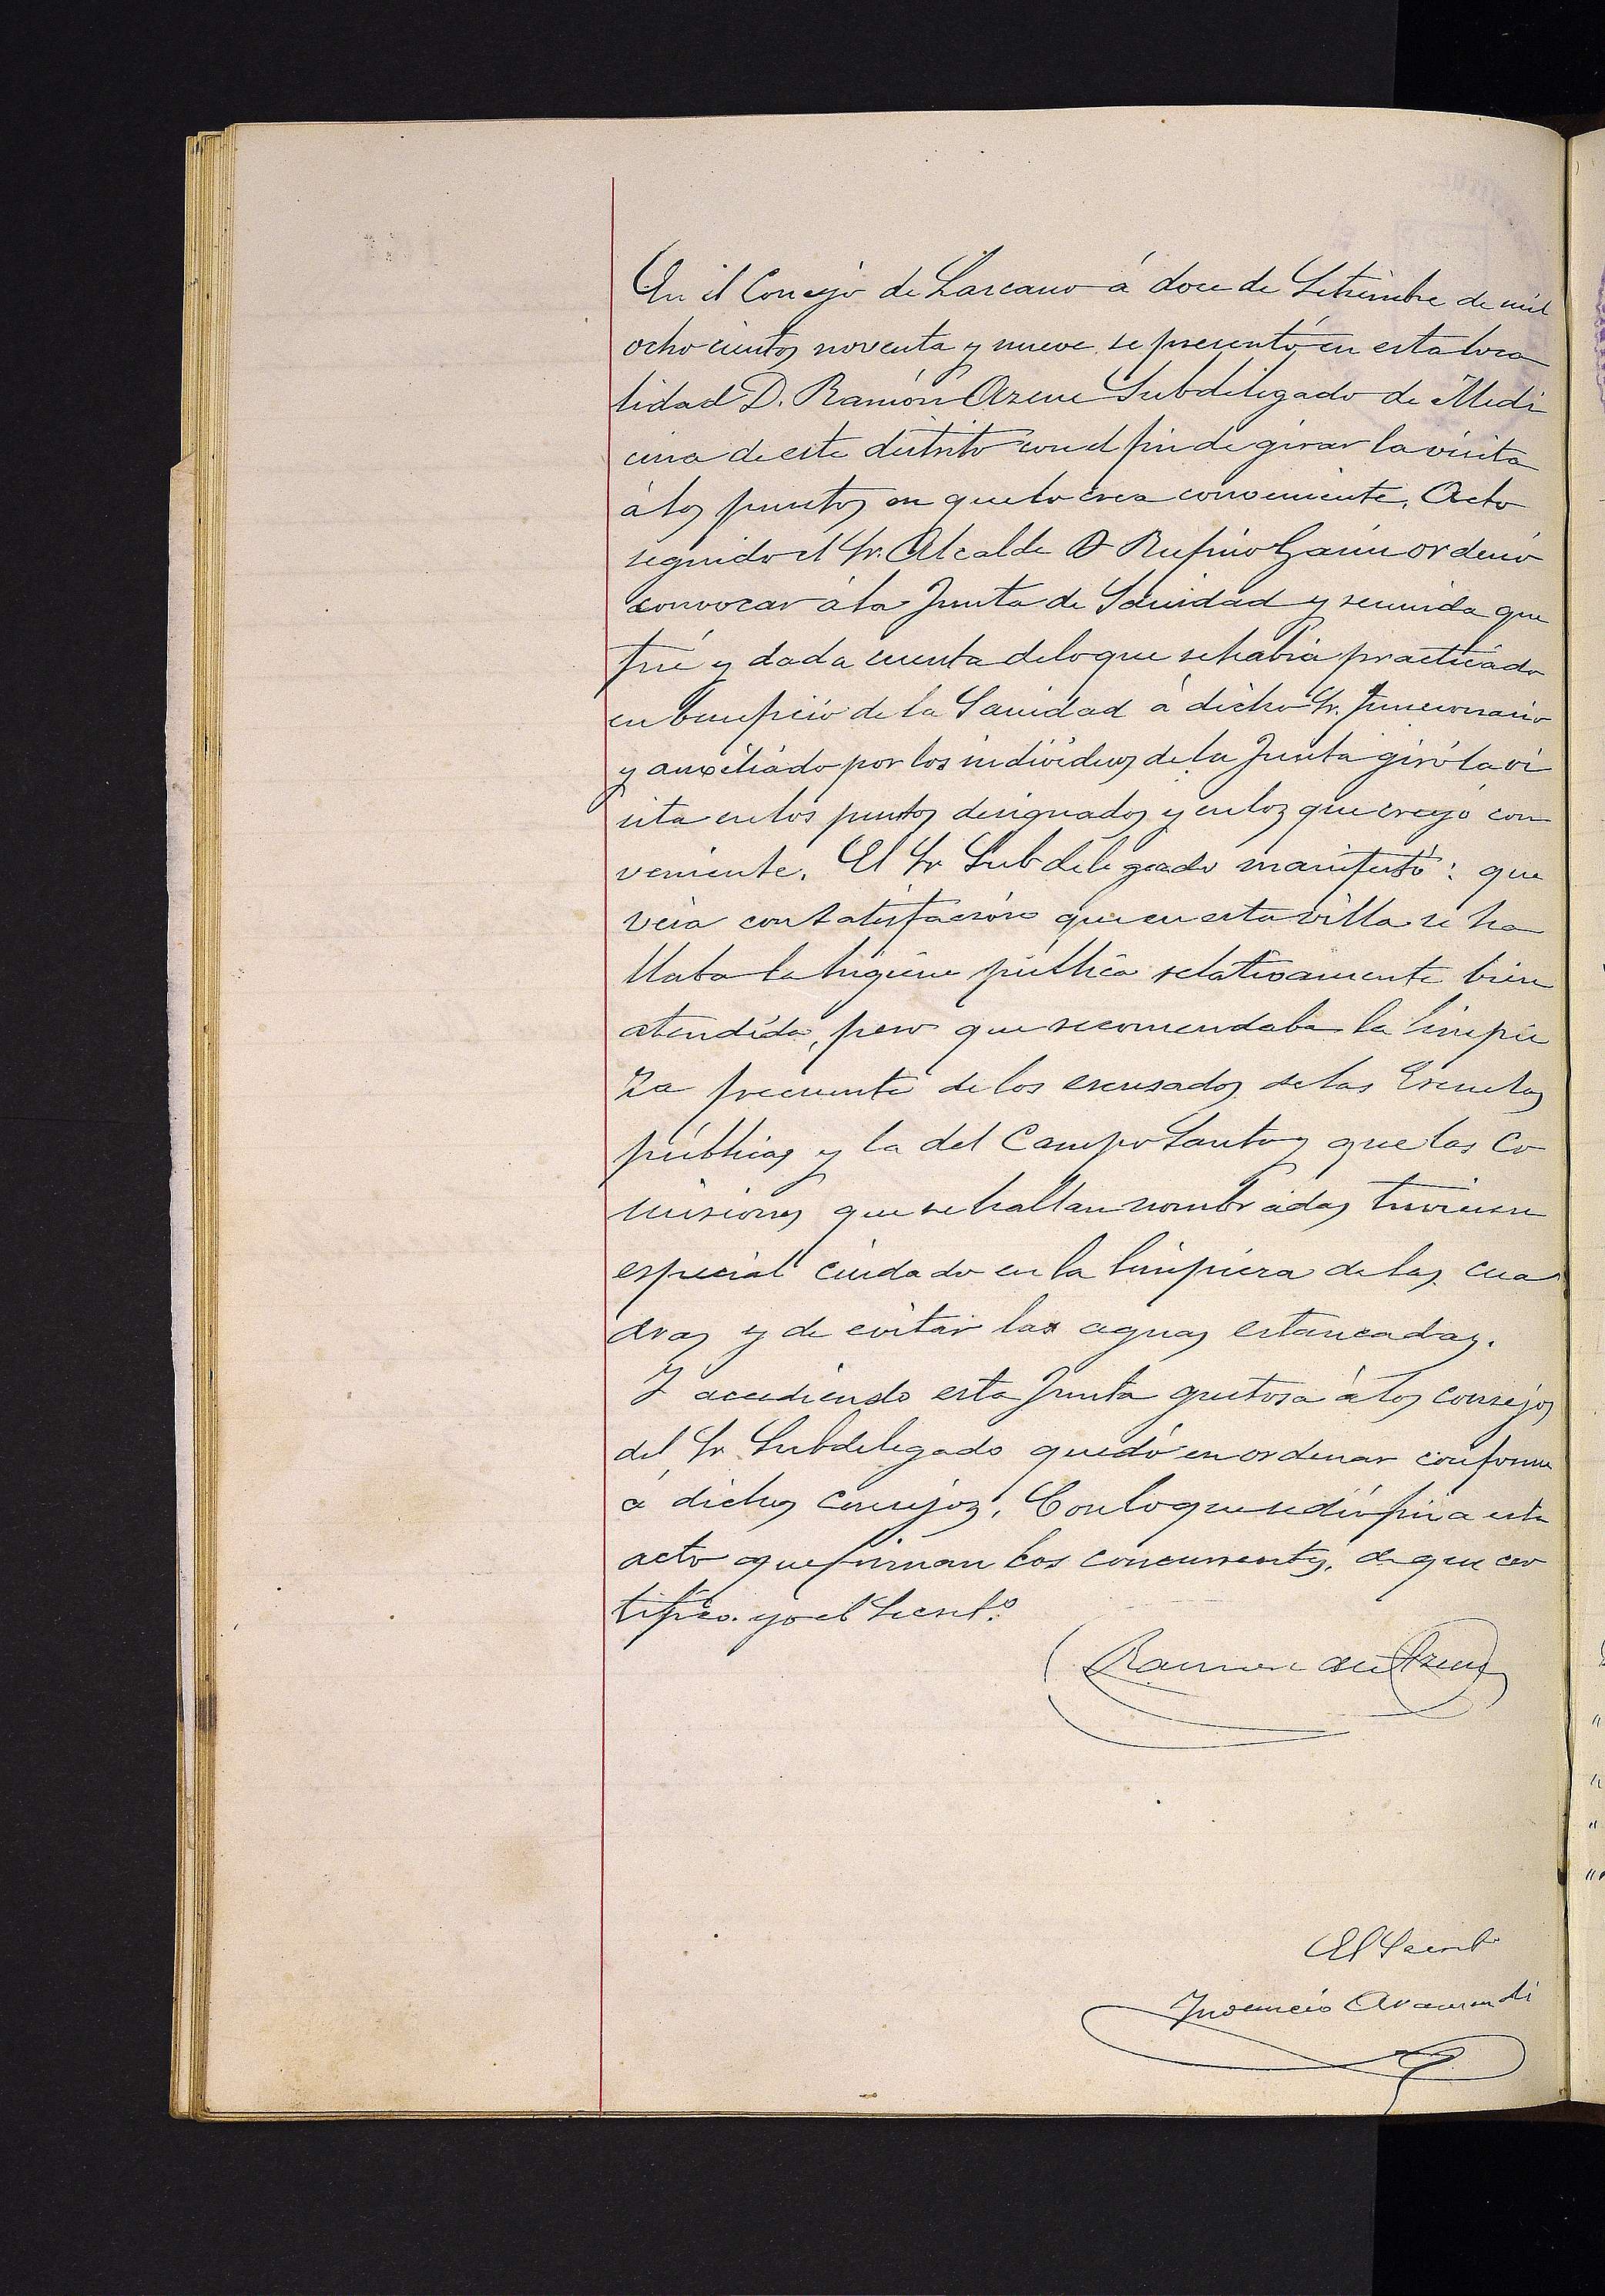 En el Concejo de Lazcano á doce de Setiembre de mil
ochocientos noventa y nueve se presentó en esta loca
lidad D. Ramón Azcue Subdelegado de Medi
cina de este distrito con el fin de girar la visita
á los puntos en que lo crea conveniente. Acto
seguido el Sr. Alcalde D Rufino Garin ordenó
convocar á la Junta de Sanidad y reunida que
fué y dada cuenta de lo que se había practicado
en beneficio de la Sanidad á dicho Sr. funcionario
y auxiliado por los individuos de la Junta giró la vi
sita en los puntos designados y en los que creyó con
veniente. El Sr Subdelegado manifestó: que
veia con satisfacción que en esta villa se ha
llaba la higiene pública relativamente bien
atendida, pero que recomendaba la limpie
za frecuente de los escusados de las Escuelas
públicas y la del Campo Santo y que las Co
misiones que se hallan nombradas tuviesen
especial cuidado en la limpieza de las cua
dras y de evitar las aguas estancadas.
Y accediendo esta Junta gustosa á los consejos
del Sr Subdelegado quedó en ordenar conforme
á dichos consejos. Con lo que se dió fin a este
acto que firman los concurrentes. de que cer
tifico. yo el Secret.º
Ramon de Azcue
El Secret
Inocencio Aramendi